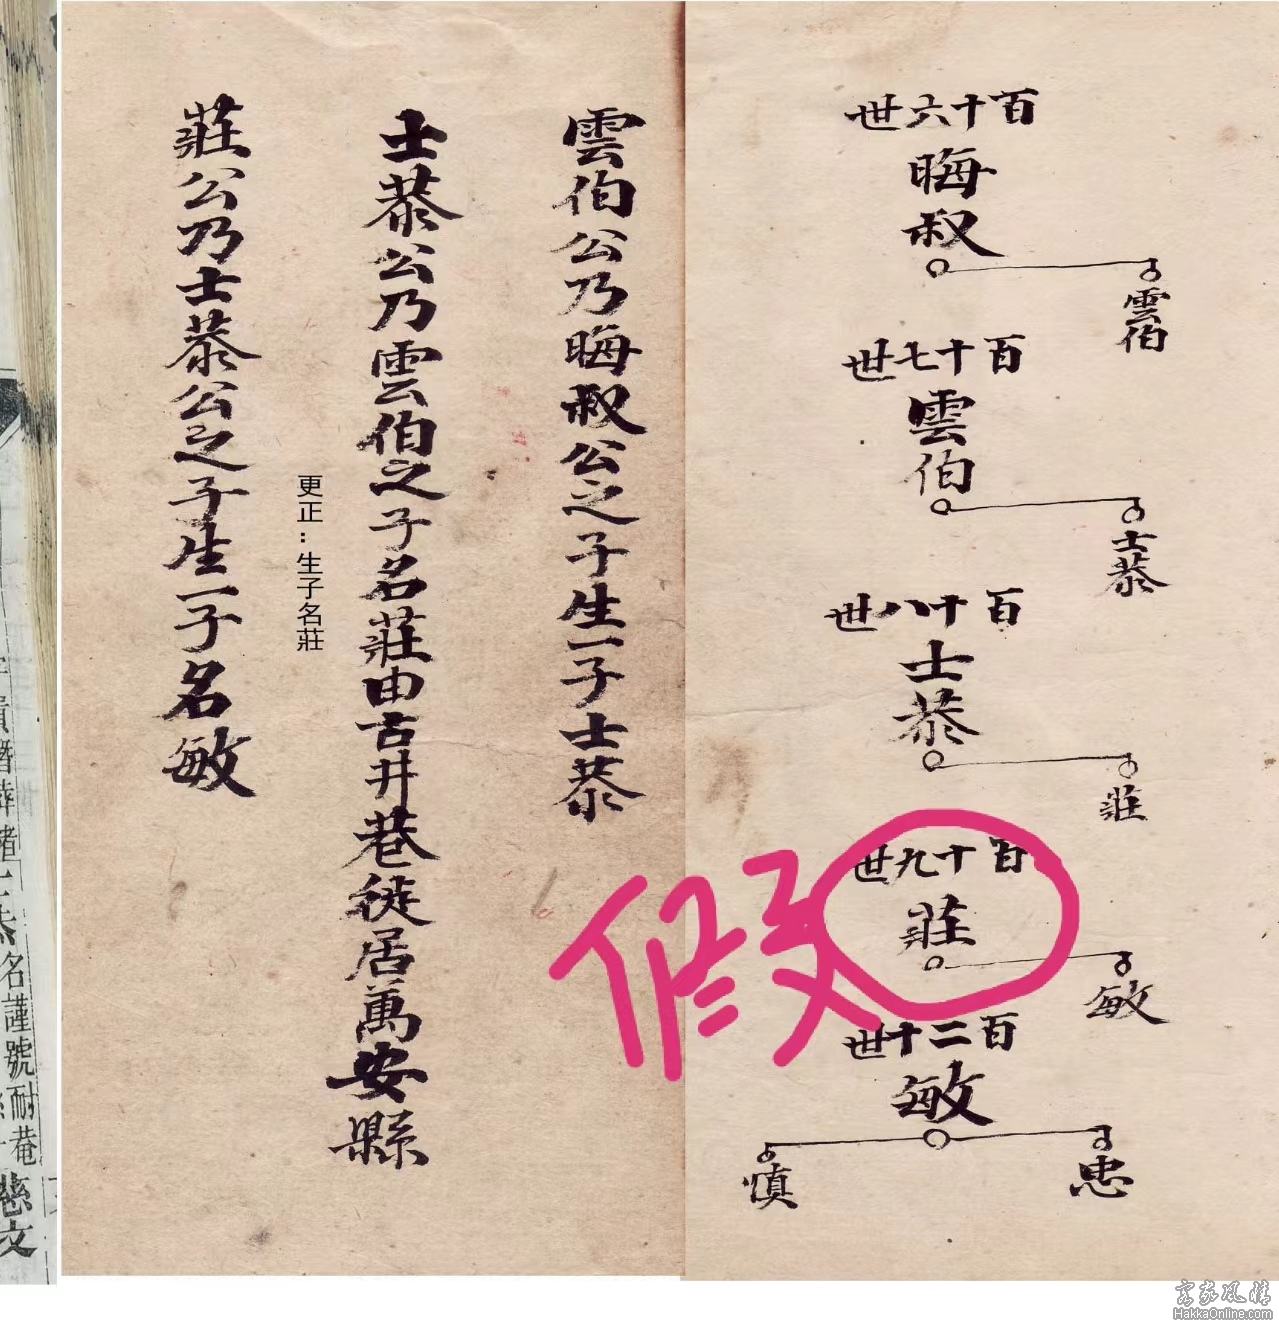 百十六世
晦叔
雲伯
百十七世
雲伯
士恭
百十八世
士恭
莊
百十九世
莊
敏
百二十世
敏
忠
慎
假
雲伯公乃晦叔公之子生一子士恭
士恭公乃雲伯之子名莊由古井巷徙居萬安縣
更正：生子名莊
莊公乃士恭公之子生一子名敏
名謹號耐菴
文
客家風情
HakkaOnline.com